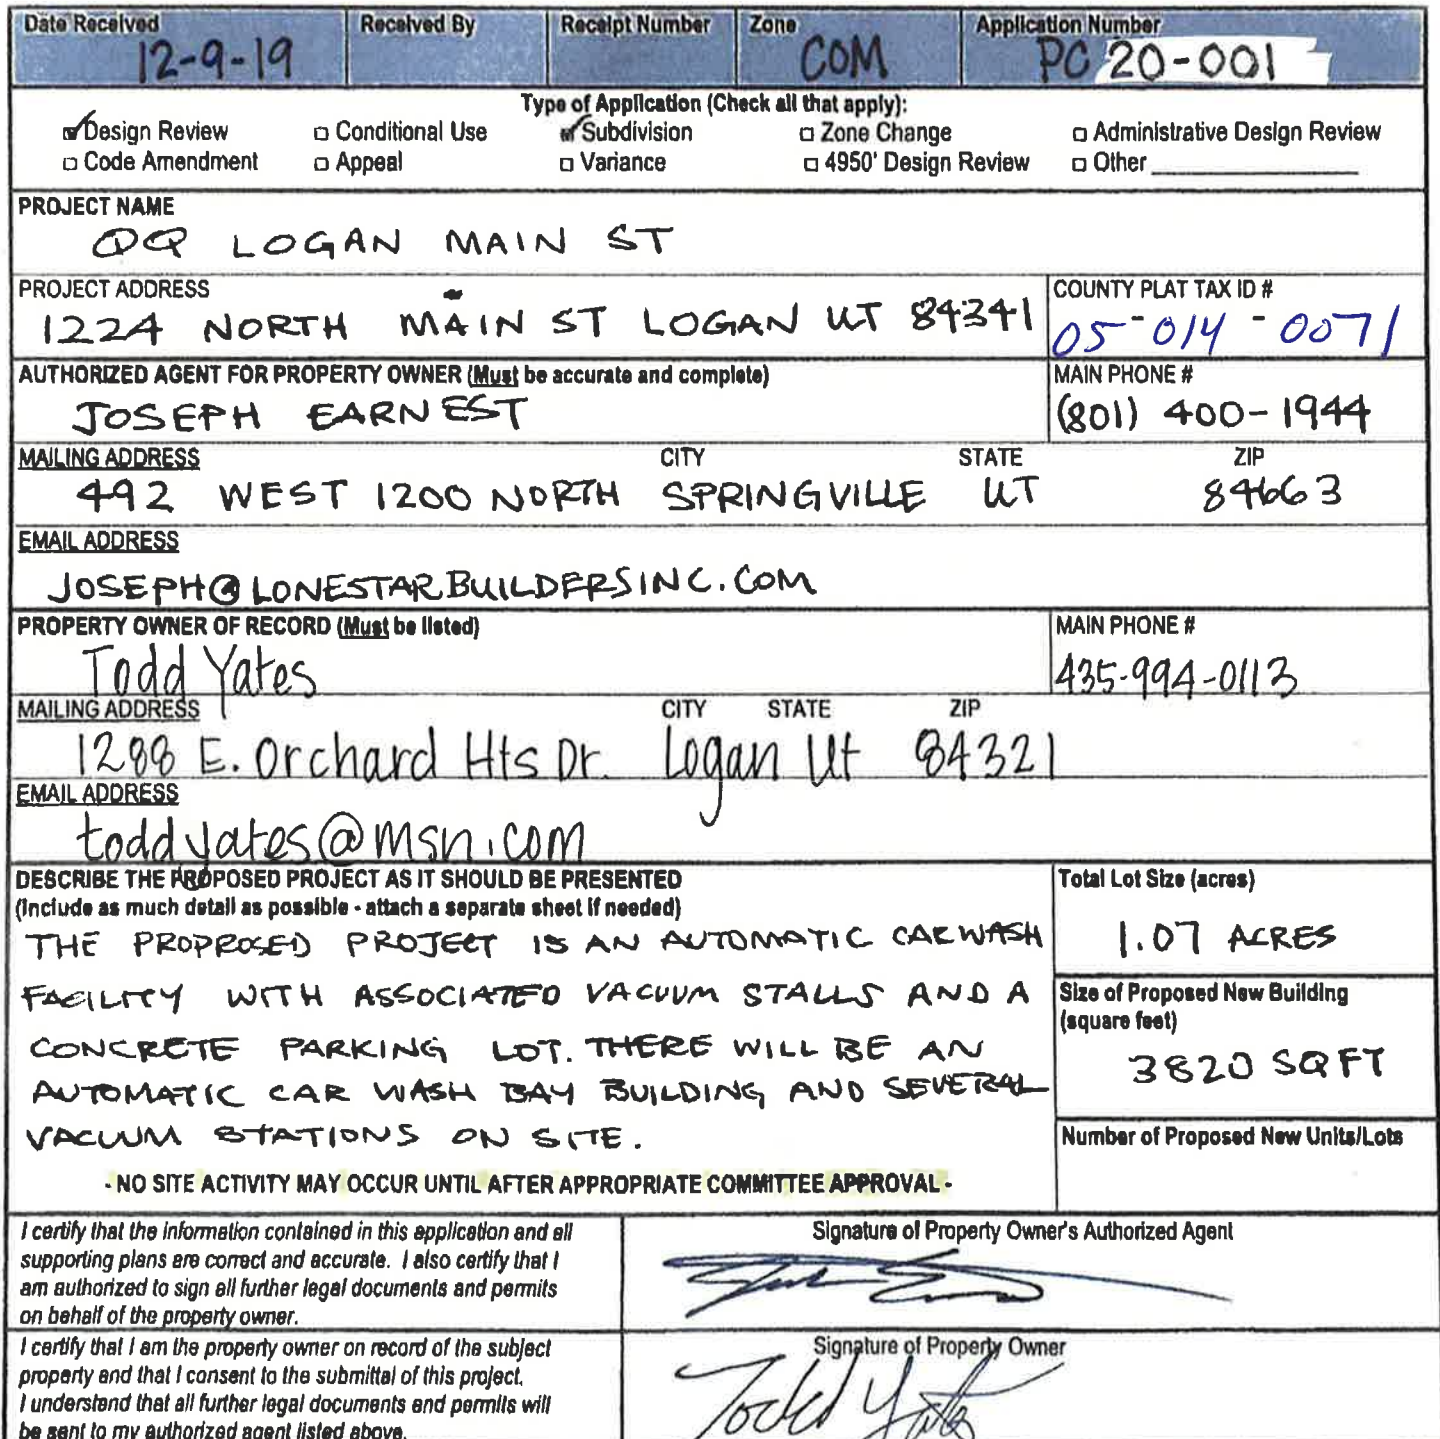 Date Received Received By Receipt Number Zone Application Number
12-9-19 COM PC 20-001
Type of Application (Check all that apply):
Design Review Conditional Use Subdivision Zone Change Administrative Design Review
Code Amendment Appeal Variance 4950' Design Review Other
PROJECT NAME
QQ LOGAN MAIN ST
PROJECT ADDRESS COUNTY PLAT TAX ID #
1224 NORTH MAIN ST LOGAN UT 84341 05-014-0071
AUTHORIZED AGENT FOR PROPERTY OWNER (Must be accurate and complete) MAIN PHONE #
JOSEPH EARNEST (801) 400-1944
MAILING ADDRESS CITY STATE ZIP
492 WEST 1200 NORTH SPRINGVILLE UT 84663
EMAIL ADDRESS
JOSEPH@LONESTARBUILDERSINC.COM
PROPERTY OWNER OF RECORD (Must be listed) MAIN PHONE #
Todd Yates 435-994-0113
MAILING ADDRESS CITY STATE ZIP
1288 E. Orchard Hts Dr. Logan Ut 84321
EMAIL ADDRESS
toddyates@msn.com
DESCRIBE THE PROPOSED PROJECT AS IT SHOULD BE PRESENTED
(Include as much detail as possible - attach a separate sheet if needed)
THE PROPROSED PROJECT IS AN AUTOMATIC CAR WASH
FACILITY WITH ASSOCIATED VACUUM STALLS AND A
CONCRETE PARKING LOT. THERE WILL BE AN
AUTOMATIC CAR WASH BAY BUILDING AND SEVERAL
VACUUM STATIONS ON SITE.
- NO SITE ACTIVITY MAY OCCUR UNTIL AFTER APPROPRIATE COMMITTEE APPROVAL -
Total Lot Size (acres)
1.07 ACRES
Size of Proposed New Building
(square feet)
3820 SQ FT
Number of Proposed New Units/Lots
I certify that the information contained in this application and all
supporting plans are correct and accurate. I also certify that I
am authorized to sign all further legal documents and permits
on behalf of the property owner.
Signature of Property Owner's Authorized Agent
I certify that I am the property owner on record of the subject
property and that I consent to the submittal of this project.
I understand that all further legal documents and permits will
be sent to my authorized agent listed above.
Signature of Property Owner
Todd Yates